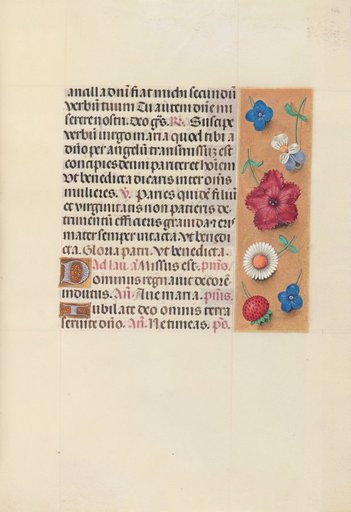 ancilla dn̄i fiat michi secundū
verbū tuum Tu autem dn̄e mi
serere nostri. Deo gr̄s. R̄. Suscipe
verbū virgo maria quod tibi a
dn̄o per angelū transmissū est
concipies deum pariter et hoīem
Vt benedicta dicaris inter om̄s
mulieres. V. Paries quidē filiū
et virginitatis non patieris de-
trimentū efficieris grauida et eri
mater semper intacta Vt benedi
cta. Gloria patri. Vt benedicta.
Ad lau. a Missus est. pm̄s
Dominus regnauit decorē
indutus. An̄. Aue maria. pm̄s.
Iubilate deo omnis terra
seruite dn̄o. An̄. Ne timeas. ps̄.